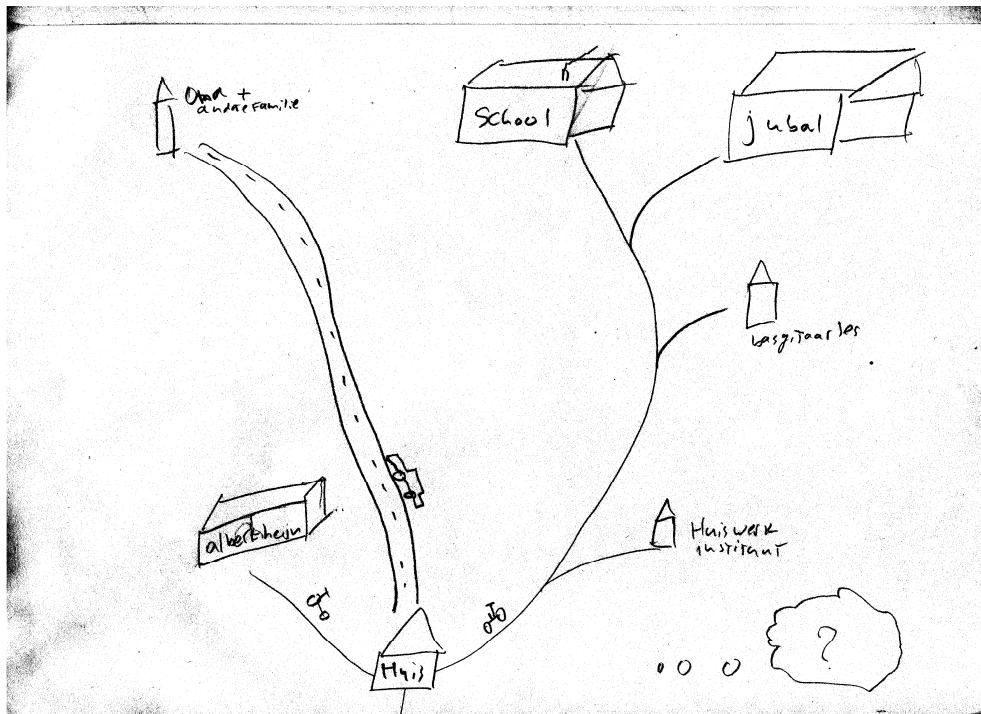 Oma +
andre Familie
School
jubal
basgitaarles
alberthheijn
Huiswerk
instituut
Huis
?